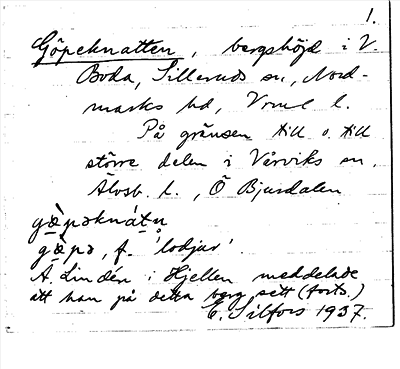 1.
Göpeknatten, bergshöjd i V.
Boda, Silleruds sn., Nord-
marks hd, Vrml l.
På gränsen till o. till
större delen i Vårviks sn.
Älvsb. l., Ö Bjursdalen.
gæ̀pəknátn̥
gæ̀pə, f. 'lodjur'.
A. Lindén i Hjellen meddelade
att han på detta berg sett (forts.)
E. Silfors 1937.